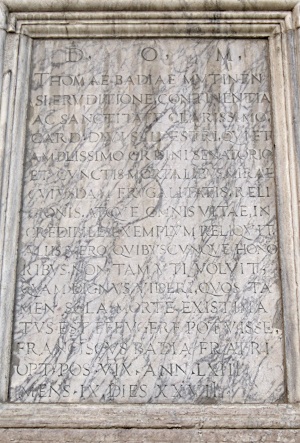 D. O. M.
THOMAE BADIAE MVTINEN
SI ERVDITIONE CONTINENTIA
AC SANCTITATE CLARISSIMO
CARD DIVI SILVESTRI QVI ET
AMPLISSIMO ORDINI SENATORIO
ET CVNCTIS MORTALIBVS MIRAE
RELI
GIONIS ATQVE OMNIS VIRTAE IN
CREDIBILE EXEMPLVM RELIQVIT
ILLIS VERO QVIBVSCVNQVE HONO
RIBVS NON TAM VTI VOLVIT
QVAM DIGNVS VIDERI QVOS TA
MEN SOLA MORTE EXISTIMA
TVS EST EFFVGERE POTVISSE
FRANCISCVS BADIA FRATRI
OPT POS VIX ANN LXIII
MENS IX DIES XXVII